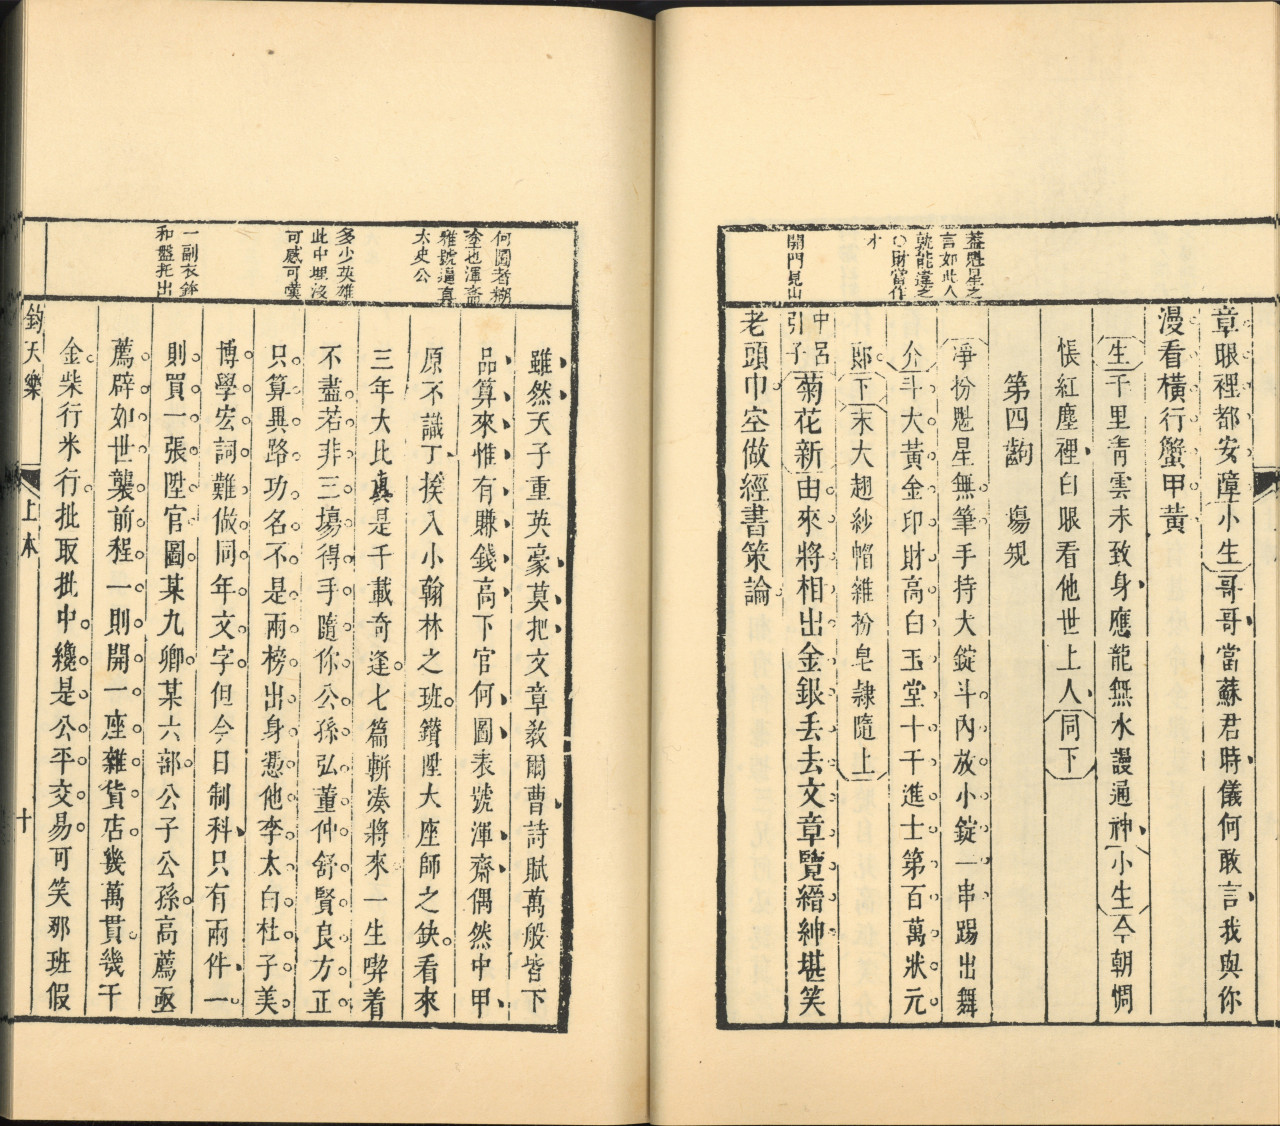 蓋魁星之
言如此人
孰能違之
○財當作
才
開門見山
章眼裡都安障小生哥哥當蘇君時儀何敢言我與你
漫看橫行蟹甲黃
生千里靑雲未致身應龍無水謾通神小生今朝惆
悵紅塵裡白眼看他世上人同下
第四齣 塲規
淨扮魁星無筆手持大錠斗內放小錠一串踢出舞
介斗大黃金印財高白玉堂十千進士第百萬狀元
郞下末大翅紗帽雜扮皂隸隨上
中呂引子菊花新由來將相出金銀丢去文章覽縉紳堪笑
老頭巾空做經書策論
何圖者糊
塗也渾齋
雅號逼真
太史公
多少英雄
此中埋沒
可感可嘆
一副衣鉢
和盤托出
雖然天子重英豪莫把文章敎爾曹詩賦萬般皆下
品算來惟有賺錢高下官何圖表號渾齋偶然中甲
原不識丁挨入小翰林之班鑽陞大座師之缺看來
三年大比真是千載奇逢七篇輧凑將來一生喫着
不盡若非三塲得手隨你公孫弘董仲舒賢良方正
只算異路功名不是兩榜出身憑他李太白杜子美
博學宏詞難做同年文字但今日制科只有兩件一
則買一張陞官圖某九卿某六部公子公孫高薦亟
薦辟如世襲前程一則開一座雜貨店幾萬貫幾千
金柴行米行批取批中纔是公平交易可笑那班假
鈞天樂 上本 十